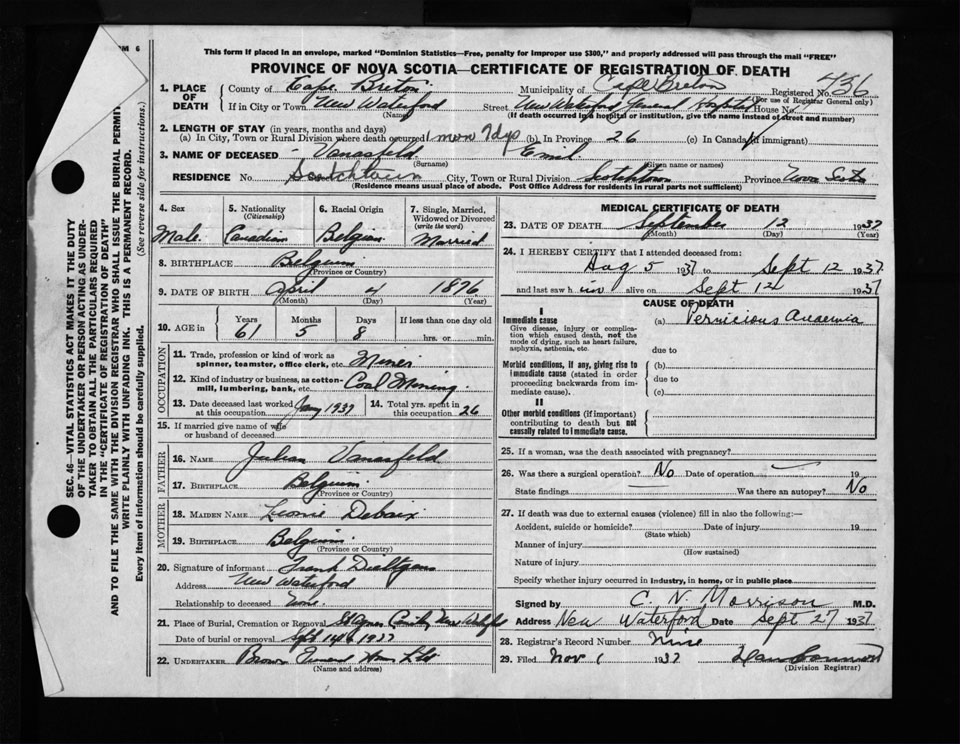 FORM 6
This form if placed in an envelope, marked "Dominion Statistics—Free, penalty for improper use $300," and properly addressed will pass through the mail "FREE"
PROVINCE OF NOVA SCOTIA—CERTIFICATE OF REGISTRATION OF DEATH
436
1. PLACE OF DEATH
County of Cape Breton Municipality of Cape Breton Registered No.
(For use of Registrar General only)
If in City or Town New Waterford Street New Waterford General Hospital House No.
(Name) (If death occurred in a hospital or institution, give the name instead of street and number)
2. LENGTH OF STAY (in years, months and days)
(a) In City, Town or Rural Division where death occurred 1 mon 7 dys (b) In Province 26 (c) In Canada (if immigrant)
3. NAME OF DECEASED Vanasfeld Emil
(Surname) (Given name or names)
RESIDENCE No. Scotchtown City, Town or Rural Division Scotchtown Province Nova Scotia
(Residence means usual place of abode. Post Office Address for residents in rural parts not sufficient)
4. Sex 5. Nationality (Citizenship) 6. Racial Origin 7. Single, Married, Widowed or Divorced (write the word)
Male Canadian Belgian Married
8. BIRTHPLACE Belgium
(Province or Country)
9. DATE OF BIRTH April 4 1876
(Month) (Day) (Year)
10. AGE in Years Months Days If less than one day old
61 5 8 hrs. or min.
OCCUPATION
11. Trade, profession or kind of work as spinner, teamster, office clerk, etc. Miner
12. Kind of industry or business, as cotton-mill, lumbering, bank, etc. Coal Mining
13. Date deceased last worked at this occupation Jany 1937 14. Total yrs. spent in this occupation 26
15. If married give name of wife or husband of deceased
FATHER
16. NAME Julian Vanasfeld
17. BIRTHPLACE Belgium
(Province or Country)
MOTHER
18. MAIDEN NAME Leonie
19. BIRTHPLACE Belgium
(Province or Country)
20. Signature of informant Frank
Address New Waterford
Relationship to deceased None.
21. Place of Burial, Cremation or Removal New Waterford
Date of burial or removal Sept 14th 1937
22. UNDERTAKER Brown
(Name and address)
MEDICAL CERTIFICATE OF DEATH
23. DATE OF DEATH September 12 1937
(Month) (Day) (Year)
24. I HEREBY CERTIFY that I attended deceased from:
Aug 5 1937 to Sept 12 1937
and last saw him alive on Sept 12 1937
CAUSE OF DEATH
I
Immediate cause (a) Pernicious Anaemia
Give disease, injury or complication which caused death, not the mode of dying, such as heart failure, asphyxia, asthenia, etc.
due to
Morbid conditions, if any, giving rise to immediate cause (stated in order proceeding backwards from immediate cause).
(b)
due to
(c)
II
Other morbid conditions (if important) contributing to death but not causally related to immediate cause.
25. If a woman, was the death associated with pregnancy?
26. Was there a surgical operation? No Date of operation 19
State findings Was there an autopsy? No
27. If death was due to external causes (violence) fill in also the following:—
Accident, suicide or homicide? Date of injury 19
(State which)
Manner of injury
(How sustained)
Nature of injury
Specify whether injury occurred in industry, in home, or in public place
Signed by C. N. Morrison M.D.
Address New Waterford Date Sept 27 1937
28. Registrar's Record Number Nine
29. Filed Nov 1 1937
(Division Registrar)
SEC. 46—VITAL STATISTICS ACT MAKES IT THE DUTY
OF THE UNDERTAKER OR PERSON ACTING AS UNDER-
TAKER TO OBTAIN ALL THE PARTICULARS REQUIRED
IN THE "CERTIFICATE OF REGISTRATION OF DEATH"
AND TO FILE THE SAME WITH THE DIVISION REGISTRAR WHO SHALL ISSUE THE BURIAL PERMIT.
WRITE PLAINLY WITH UNFADING INK. THIS IS A PERMANENT RECORD.
Every item of information should be carefully supplied. (See reverse side for instructions.)